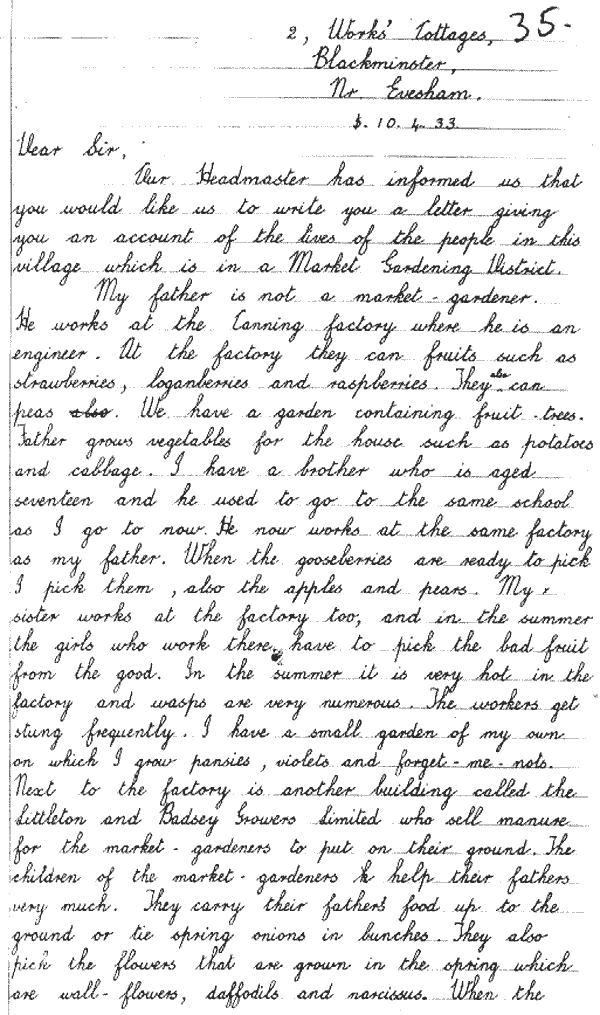 2, Works' Cottages, 35.
Blackminster,
Nr. Evesham.
10. 4. 33
Dear Sir,
Our Headmaster has informed us that
you would like us to write you a letter giving
you an account of the lives of the people in this
village which is in a Market Gardening District.
My father is not a market-gardener.
He works at the Canning factory where he is an
engineer. At the factory they can fruits such as
strawberries, loganberries and raspberries. They also can
peas also. We have a garden containing fruit-trees.
Father grows vegetables for the house such as potatoes
and cabbage. I have a brother who is aged
seventeen and he used to go to the same school
as I go to now. He now works at the same factory
as my father. When the gooseberries are ready to pick
I pick them, also the apples and pears. My
sister works at the factory too, and in the summer
the girls who work there, have to pick the bad fruit
from the good. In the summer it is very hot in the
factory and wasps are very numerous. The workers get
stung frequently. I have a small garden of my own
on which I grow pansies, violets and forget-me-nots.
Next to the factory is another building called the
Littleton and Badsey Growers Limited who sell manure
for the market-gardeners to put on their ground. The
children of the market-gardeners help their fathers
very much. They carry their father's food up to the
ground or tie spring onions in bunches. They also
pick the flowers that are grown in the spring which
are wall-flowers, daffodils and narcissus. When the